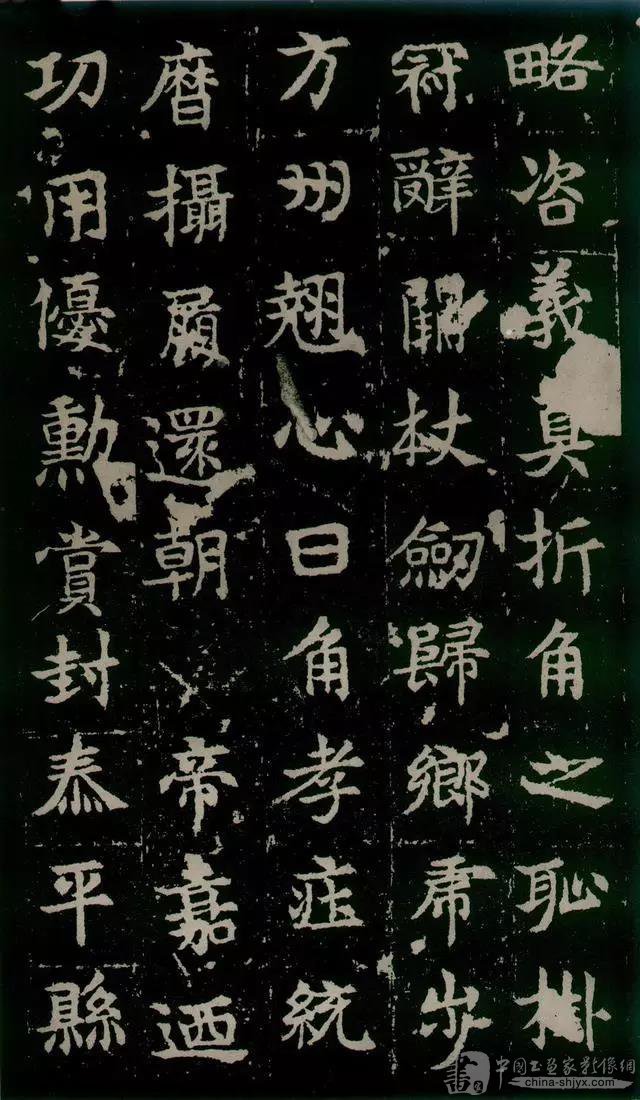 略咨義真折角之恥掛
冠辭關杖劒歸鄉虎步
方州翹心日角孝莊統
曆攝履還朝 帝嘉迺
功用優勳賞封泰平縣
中国书画家影像網
china-shjyx.com